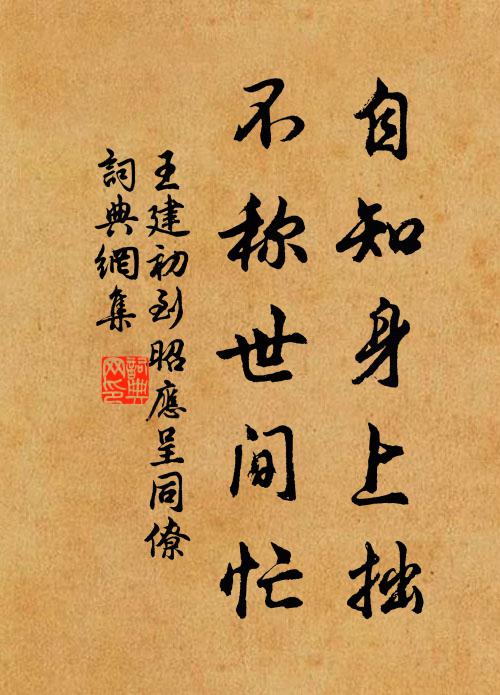 自知身上拙
不称世间忙
王建初到昭應呈同僚
詞典網集
詞典网印